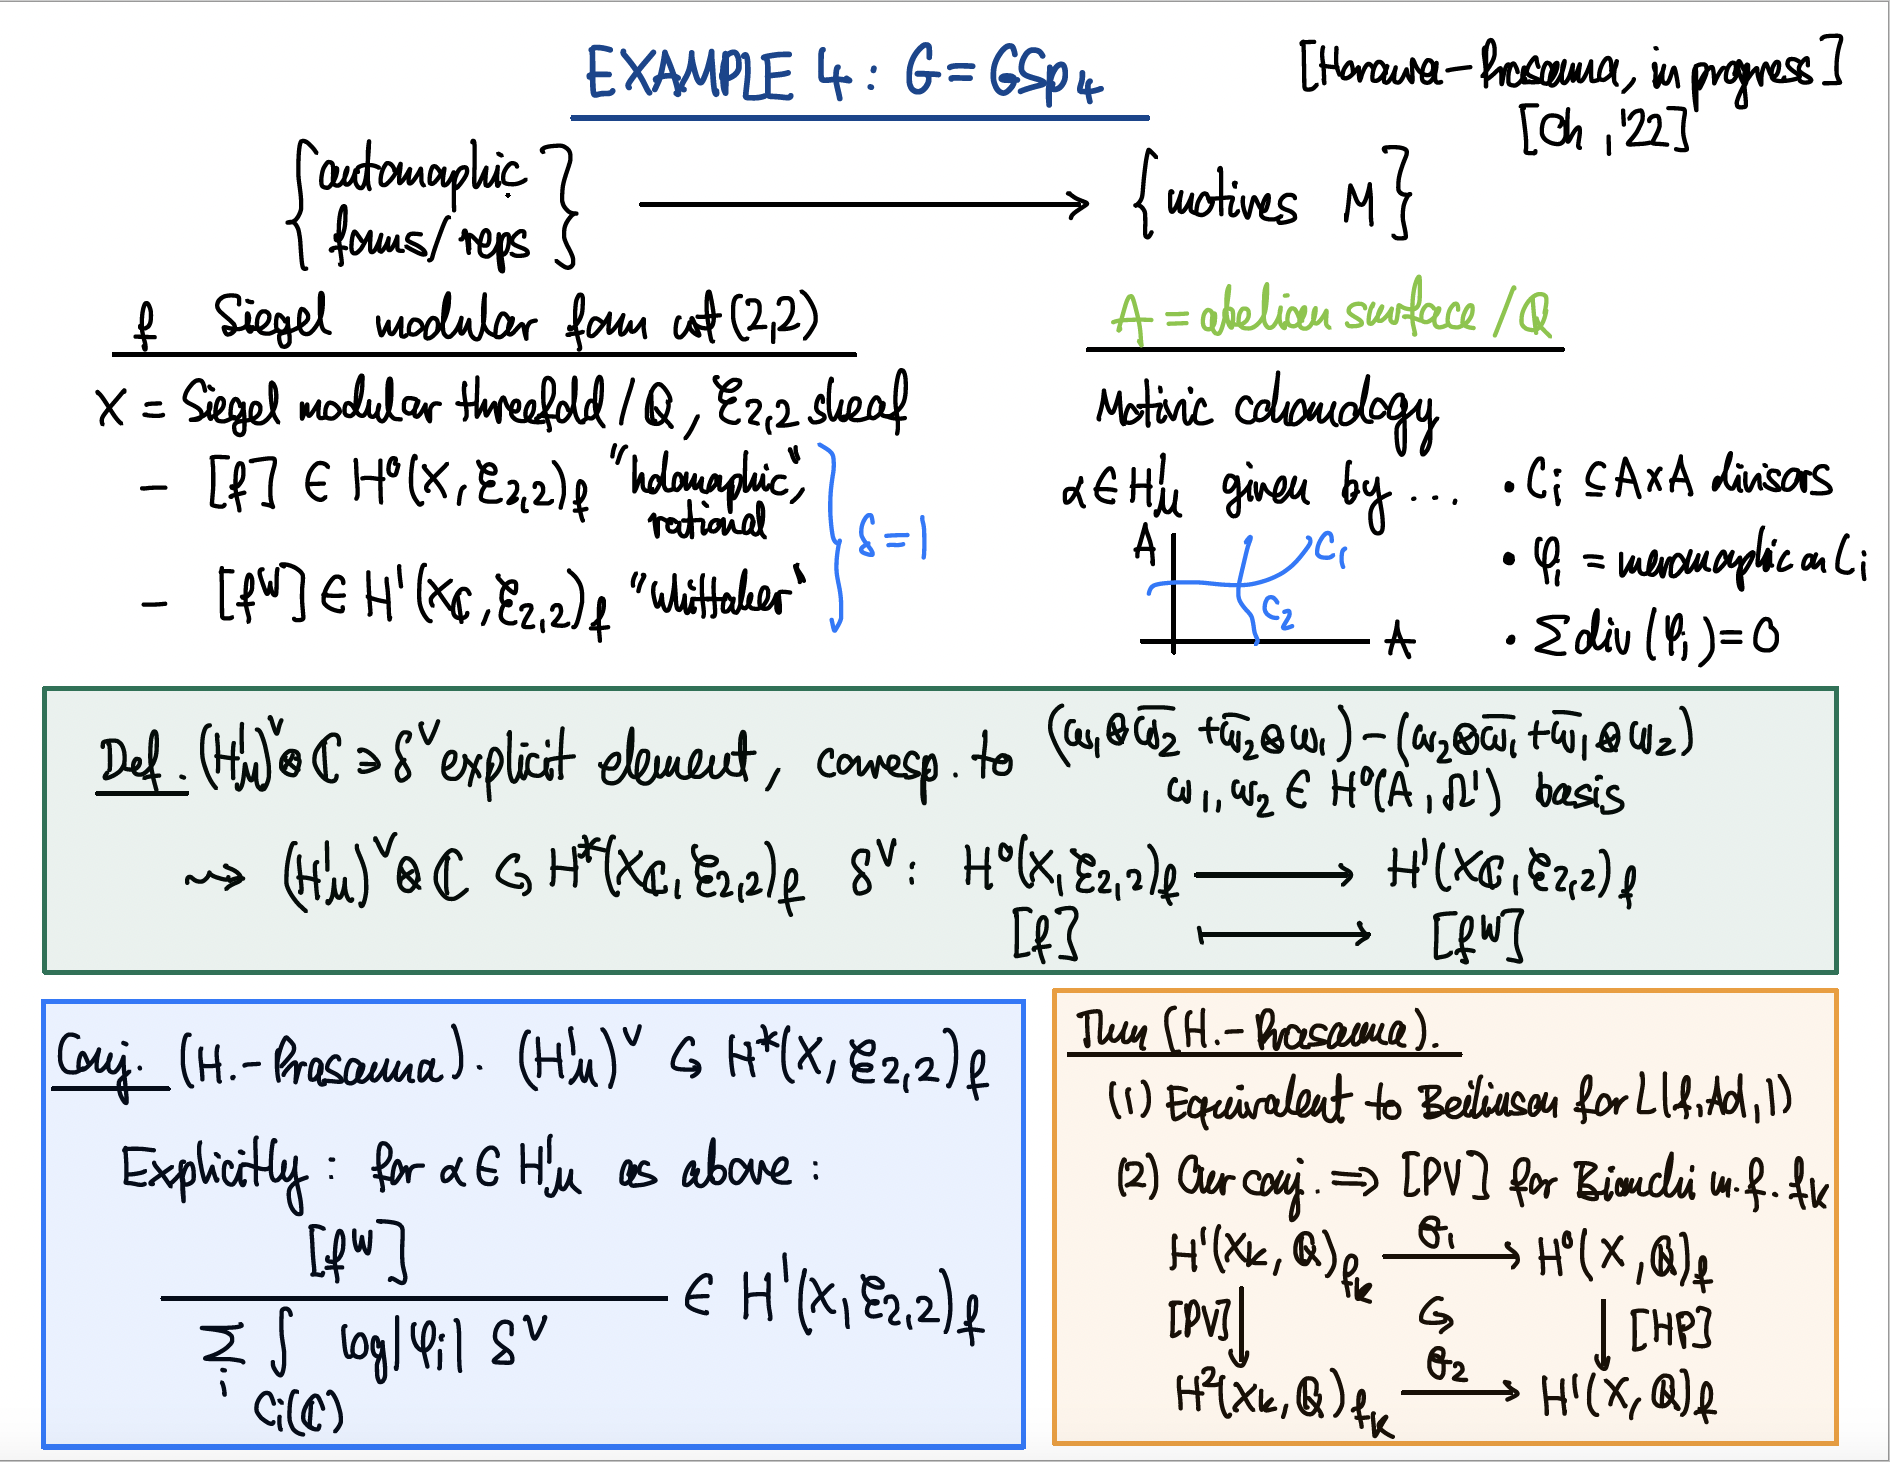 EXAMPLE 4 : G = GSp₄
[Horawa – Prasanna, in progress]
[Oh, '22]
{automorphic forms/reps} ⟶ {motives M}
f Siegel modular form wt (2,2)
A = abelian surface / ℚ
X = Siegel modular threefold / ℚ, ℰ₂,₂ sheaf
- [f] ∈ H⁰(X, ℰ₂,₂)_f "holomorphic", rational
- [f^W] ∈ H¹(X_ℂ, ℰ₂,₂)_f "Whittaker"
δ = 1
Motivic cohomology
α ∈ H¹_M given by ...
• C_i ⊆ A×A divisors
• φ_i = meromorphic on C_i
• Σ div(φ_i) = 0
A
C₁
C₂
A
Def. (H¹_M)^∨ ⊗ ℂ ∋ δ^∨ explicit element, corresp. to (ω₁⊗ω̄₂ + ω̄₂⊗ω₁) − (ω₂⊗ω̄₁ + ω̄₁⊗ω₂)
ω₁, ω₂ ∈ H⁰(A, Ω¹) basis
⇝ (H¹_M)^∨ ⊗ ℂ ↻ H*(X_ℂ, ℰ₂,₂)_f δ^∨ : H⁰(X, ℰ₂,₂)_f ⟶ H¹(X_ℂ, ℰ₂,₂)_f
[f] ⟼ [f^W]
Conj. (H.-Prasanna). (H¹_M)^∨ ↻ H*(X, ℰ₂,₂)_f
Explicitly : for α ∈ H¹_M as above :
[f^W]
∈ H¹(X, ℰ₂,₂)_f
Σ_i ∫_{C_i(ℂ)} log|φ_i| δ^∨
Thm (H.-Prasanna).
(1) Equivalent to Beilinson for L(f, Ad, 1)
(2) Our conj. ⟹ [PV] for Bianchi m.f. f_K
H¹(X_K, ℚ)_{f_K} ⟶ θ₁ H⁰(X, ℚ)_f
[PV] ↓ ↻ ↓ [HP]
H²(X_K, ℚ)_{f_K} ⟶ θ₂ H¹(X, ℚ)_f